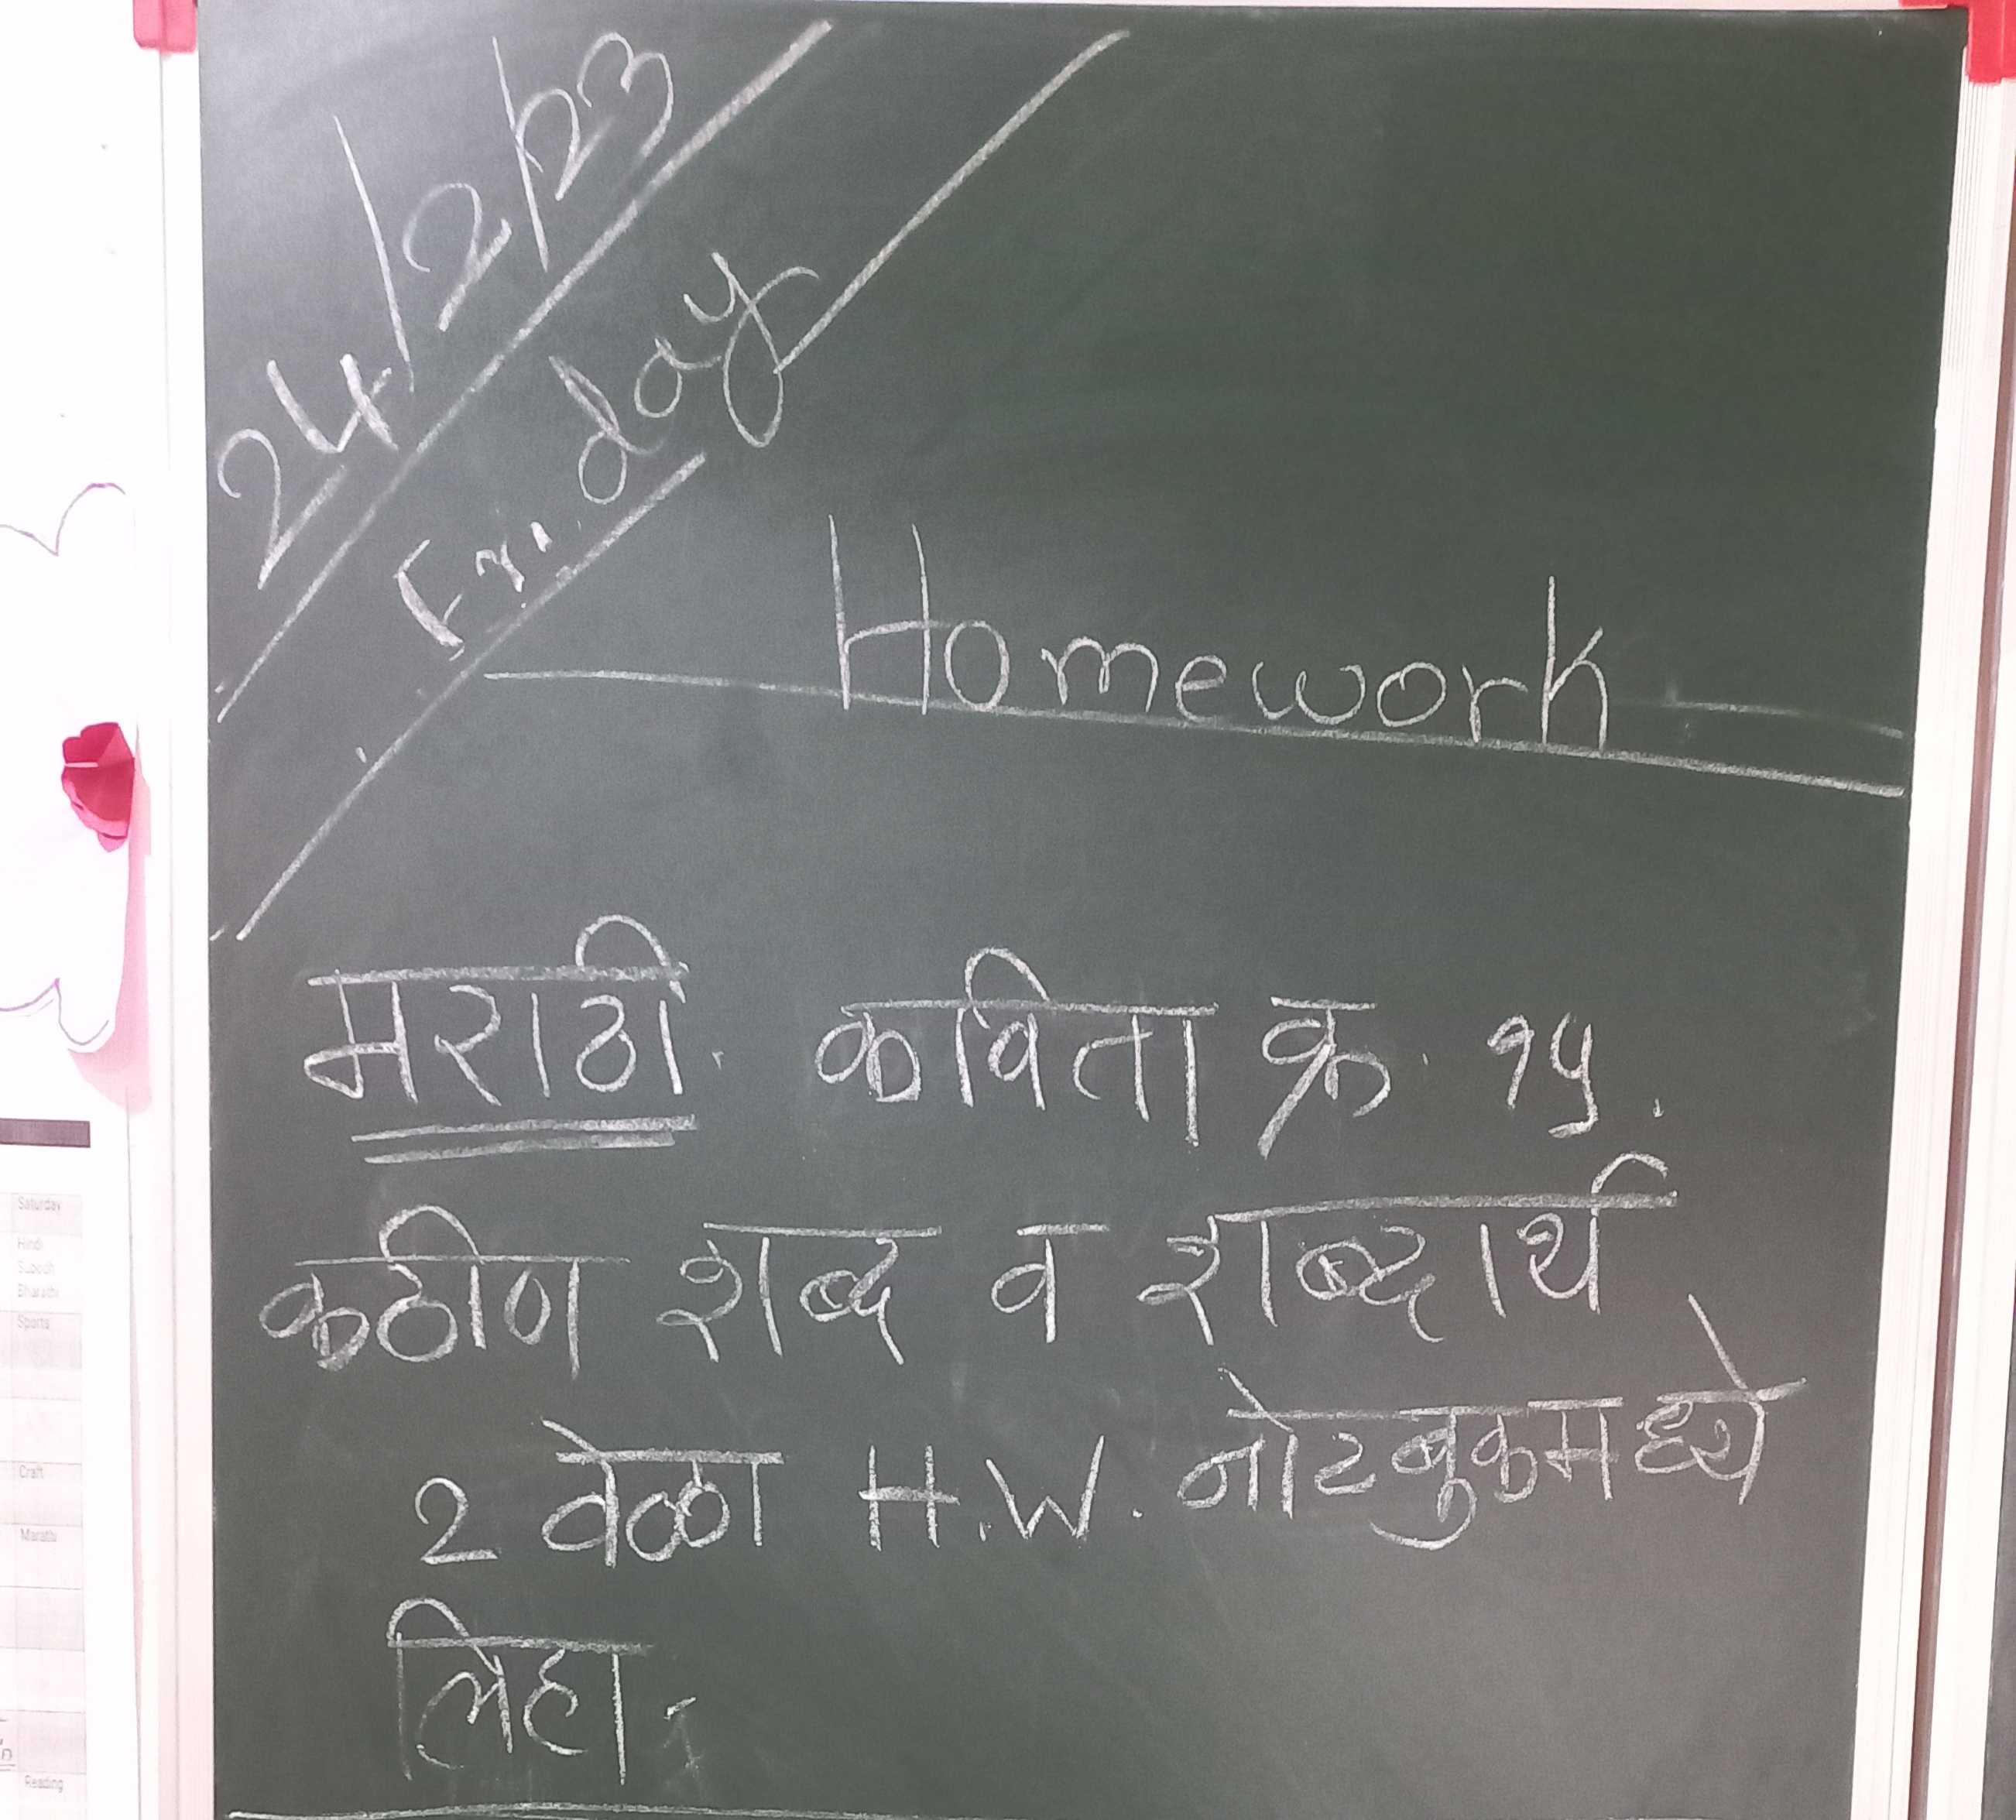 24/2/23
Friday
Homework
मराठी. कविता क्र. १५.
कठीण शब्द व शब्दार्थ
2 वेळा H.W. नोटबुकमध्ये
लिहा.
Saturday
Hindi
Subodh
Bharathi
Sports
Craft
Marathi
Reading